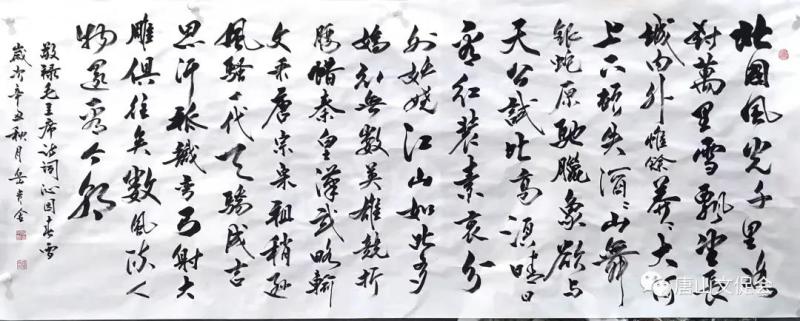 北国风光千里冰
封萬里雪飘望长
城内外惟馀莽〻大河
上下顿失滔〻山舞
银蛇原驰臘象欲与
天公試比高须晴日
看红装素裹分
外妖娆江山如此多
娇引無数英雄競折
腰惜秦皇漢武略輸
文采唐宗宋祖稍逊
風騷一代天骄成吉
思汗祇識弯弓射大
雕俱往矣数風流人
物還看今朝
敬録毛主席诗词沁园春雪
歲次辛丑秋月岳
唐山文促会